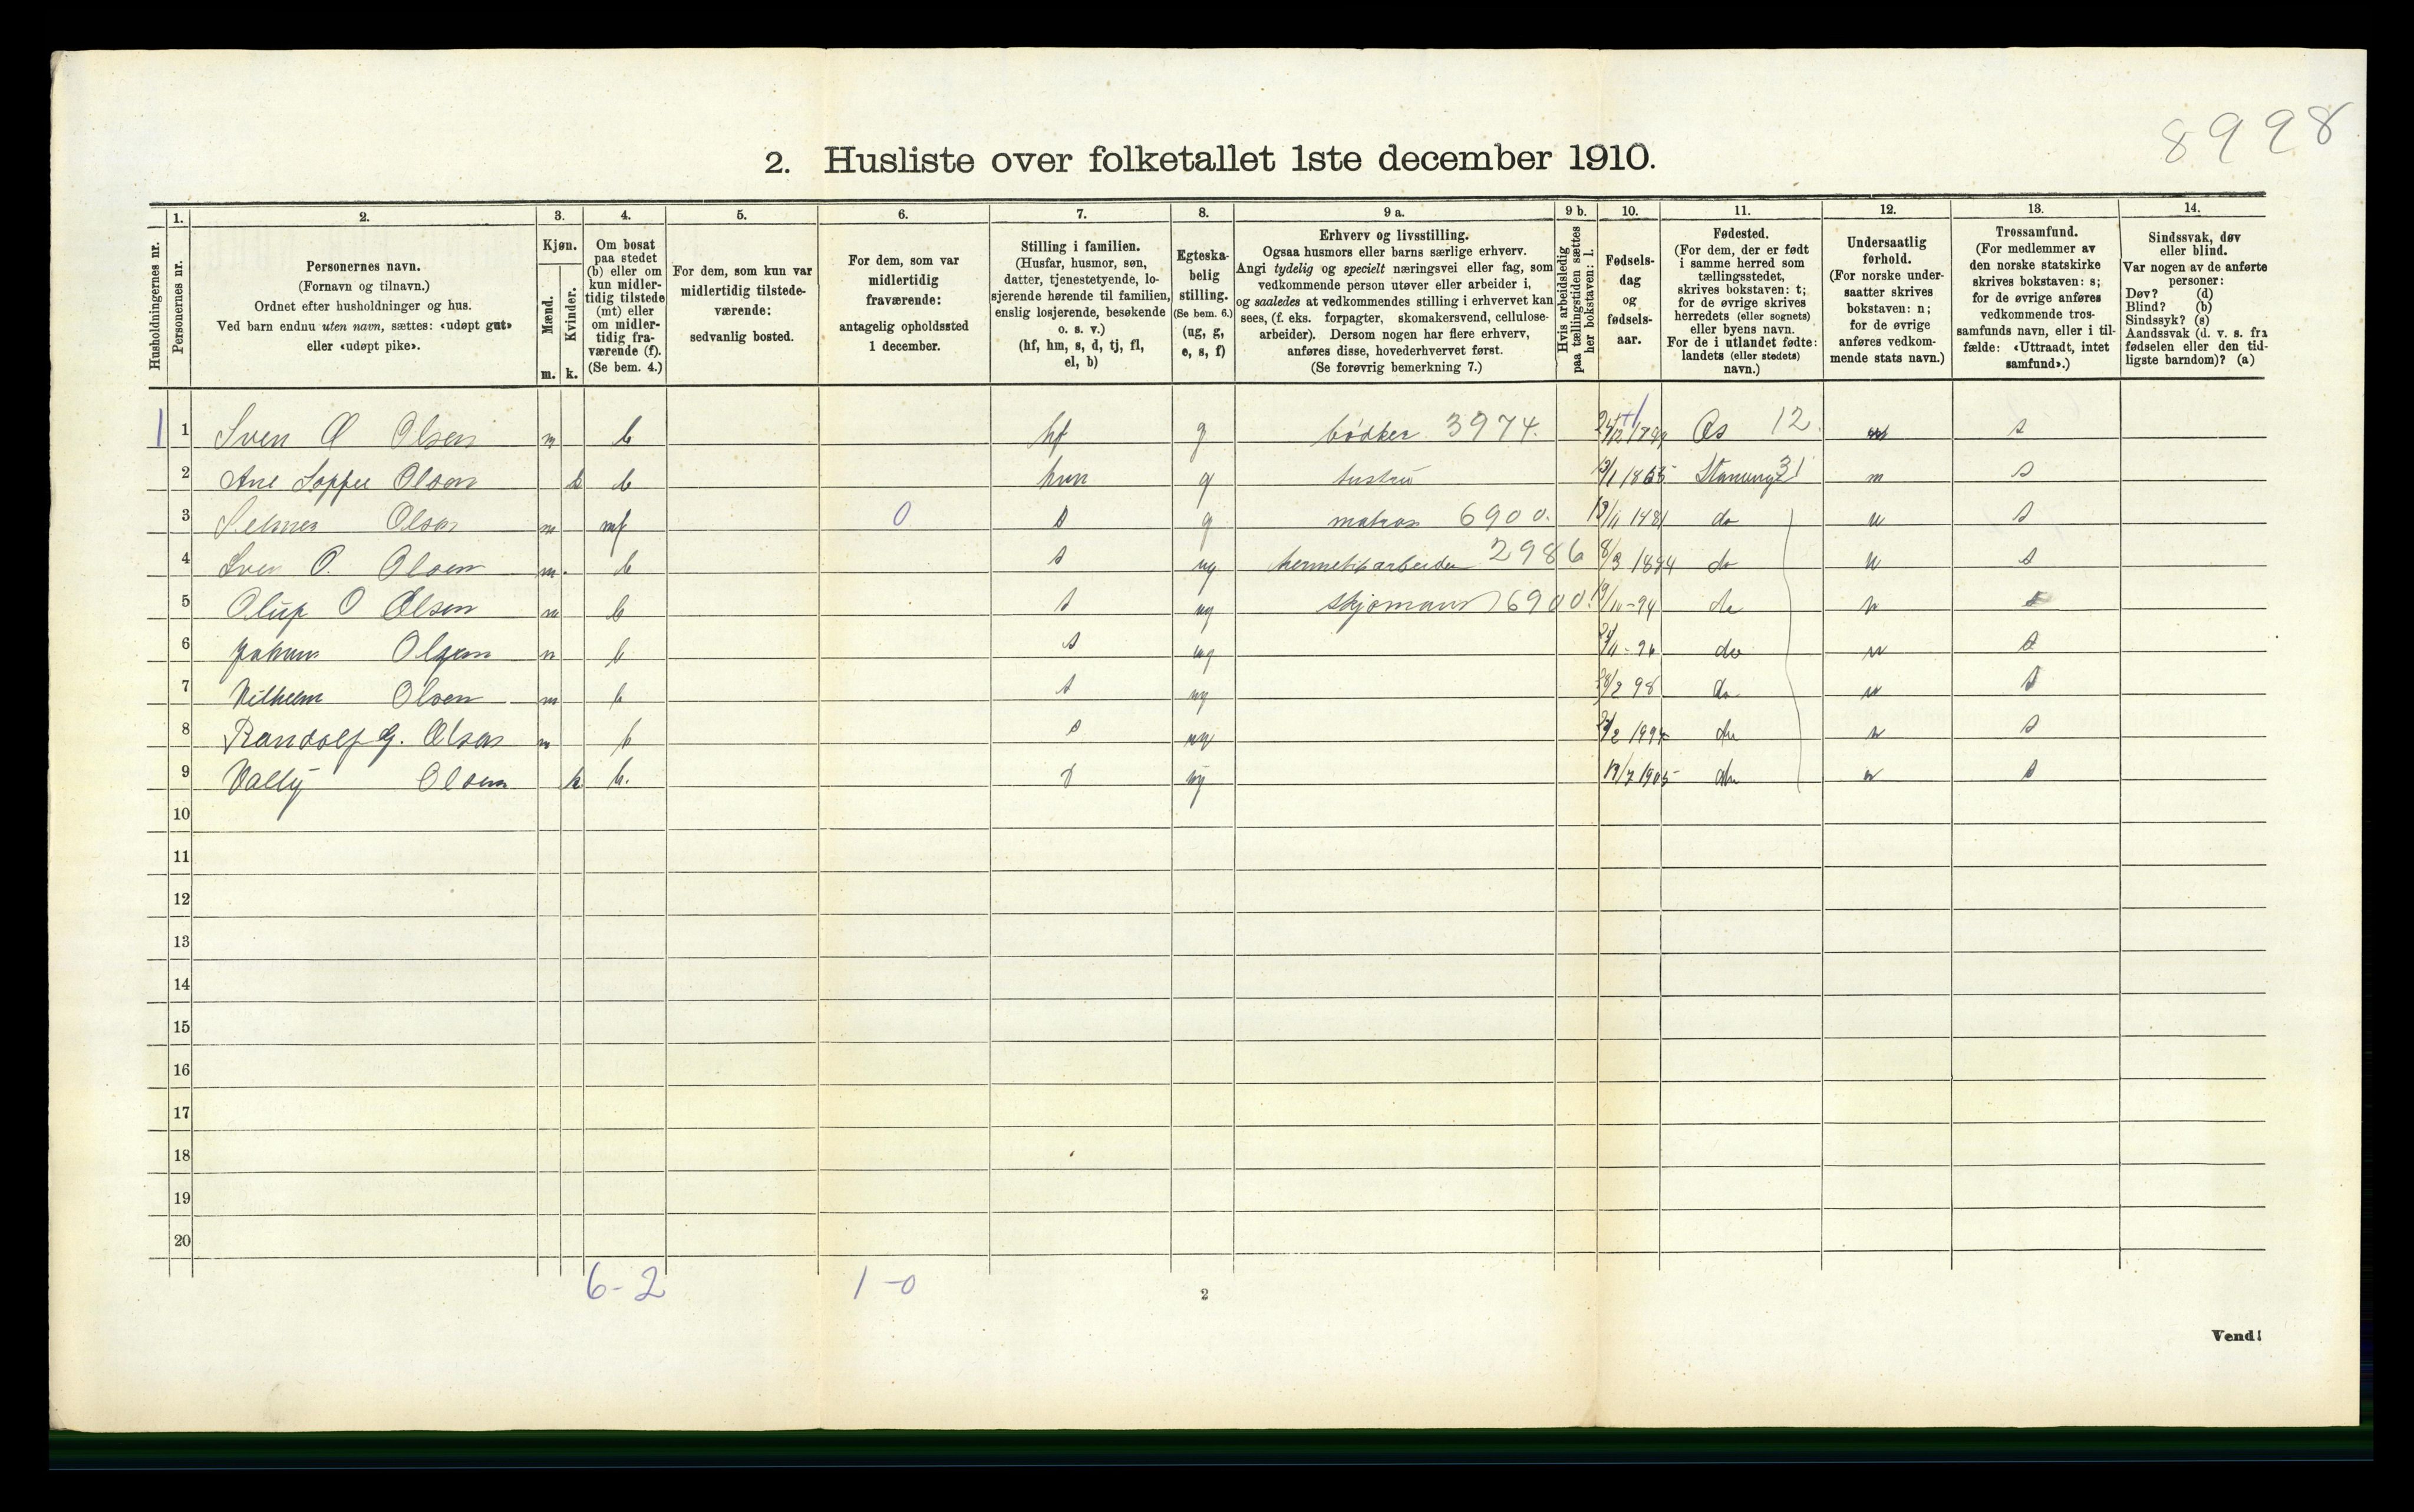 8998
2. Husliste over folketallet 1ste december 1910.
Husholdningernes nr.
1.
Personernes nr.
2.
Personernes navn.
(Fornavn og tilnavn.)
Ordnet efter husholdninger og hus.
Ved barn endnu uten navn, sættes: «udøpt gut»
eller «udøpt pike».
3.
Kjøn.
Mænd.
Kvinder.
m. k.
4.
Om bosat
paa stedet
(b) eller om
kun midler-
tidig tilstede
(mt) eller
om midler-
tidig fra-
værende (f).
(Se bem. 4.)
5.
For dem, som kun var
midlertidig tilstede-
værende:
sedvanlig bosted.
6.
For dem, som var
midlertidig
fraværende:
antagelig opholdssted
1 december.
7.
Stilling i familien.
(Husfar, husmor, søn,
datter, tjenestetyende, lo-
sjerende hørende til familien,
enslig losjerende, besøkende
o. s. v.)
(hf, hm, s, d, tj, fl,
el, b)
8.
Egteska-
belig
stilling.
(Se bem. 6.)
(ug, g,
e, s, f)
9 a.
Erhverv og livsstilling.
Ogsaa husmors eller barns særlige erhverv.
Angi tydelig og specielt næringsvei eller fag, som
vedkommende person utøver eller arbeider i,
og saaledes at vedkommendes stilling i erhvervet kan
sees, (f. eks. forpagter, skomakersvend, cellulose-
arbeider). Dersom nogen har flere erhverv,
anføres disse, hovederhvervet først.
(Se forøvrig bemerkning 7.)
9 b.
Hvis arbeidsledig
paa tællingstiden sættes
her bokstaven: l.
10.
Fødsels-
dag
og
fødsels-
aar.
11.
Fødested.
(For dem, der er født
i samme herred som
tællingsstedet,
skrives bokstaven: t;
for de øvrige skrives
herredets (eller sognets)
eller byens navn.
For de i utlandet fødte:
landets (eller stedets)
navn.)
12.
Undersaatlig
forhold.
(For norske under-
saatter skrives
bokstaven: n;
for de øvrige
anføres vedkom-
mende stats navn.)
13.
Trossamfund.
(For medlemmer av
den norske statskirke
skrives bokstaven: s;
for de øvrige anføres
vedkommende tros-
samfunds navn, eller i til-
fælde: «Uttraadt, intet
samfund».)
14.
Sindssvak, døv
eller blind.
Var nogen av de anførte
personer:
Døv? (d)
Blind? (b)
Sindssyk? (s)
Aandssvak (d. v. s. fra
fødselen eller den tid-
ligste barndom)? (a)
1 1 Sven O Olsen m b hf g bødker 3974. 12. s
2 Ane Olsen k b g 31 s
3 Olsen m 0 s g matros 6900. do s
4 Sven O. Olsen m. b s ug hermetikarbeider 2986 8/3 1894 do n s
5 O Olsen m b s ug 6900. do n s
6 Johan Olsen m b s ug do n s
7 Vilhelm Olsen m b s ug do n s
8 Randolf G. Olsen m b s ug do n s
9 Valły Olsen k. b. d ug do n s
10
11
12
13
14
15
16
17
18
19
20
6-2 1-0
2
Vend!